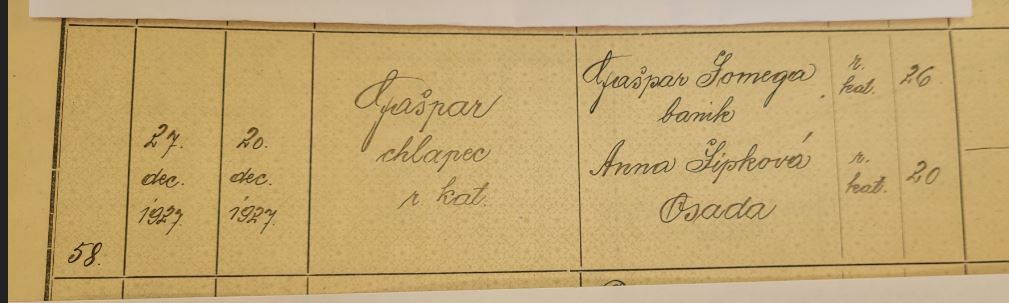 58.
27.
dec.
1927.
20.
dec.
1927.
Gašpar
chlapec
r. kat.
Gašpar Somega
baník
Anna Šipková
Osada
r.
kat.
26
r.
kat.
20